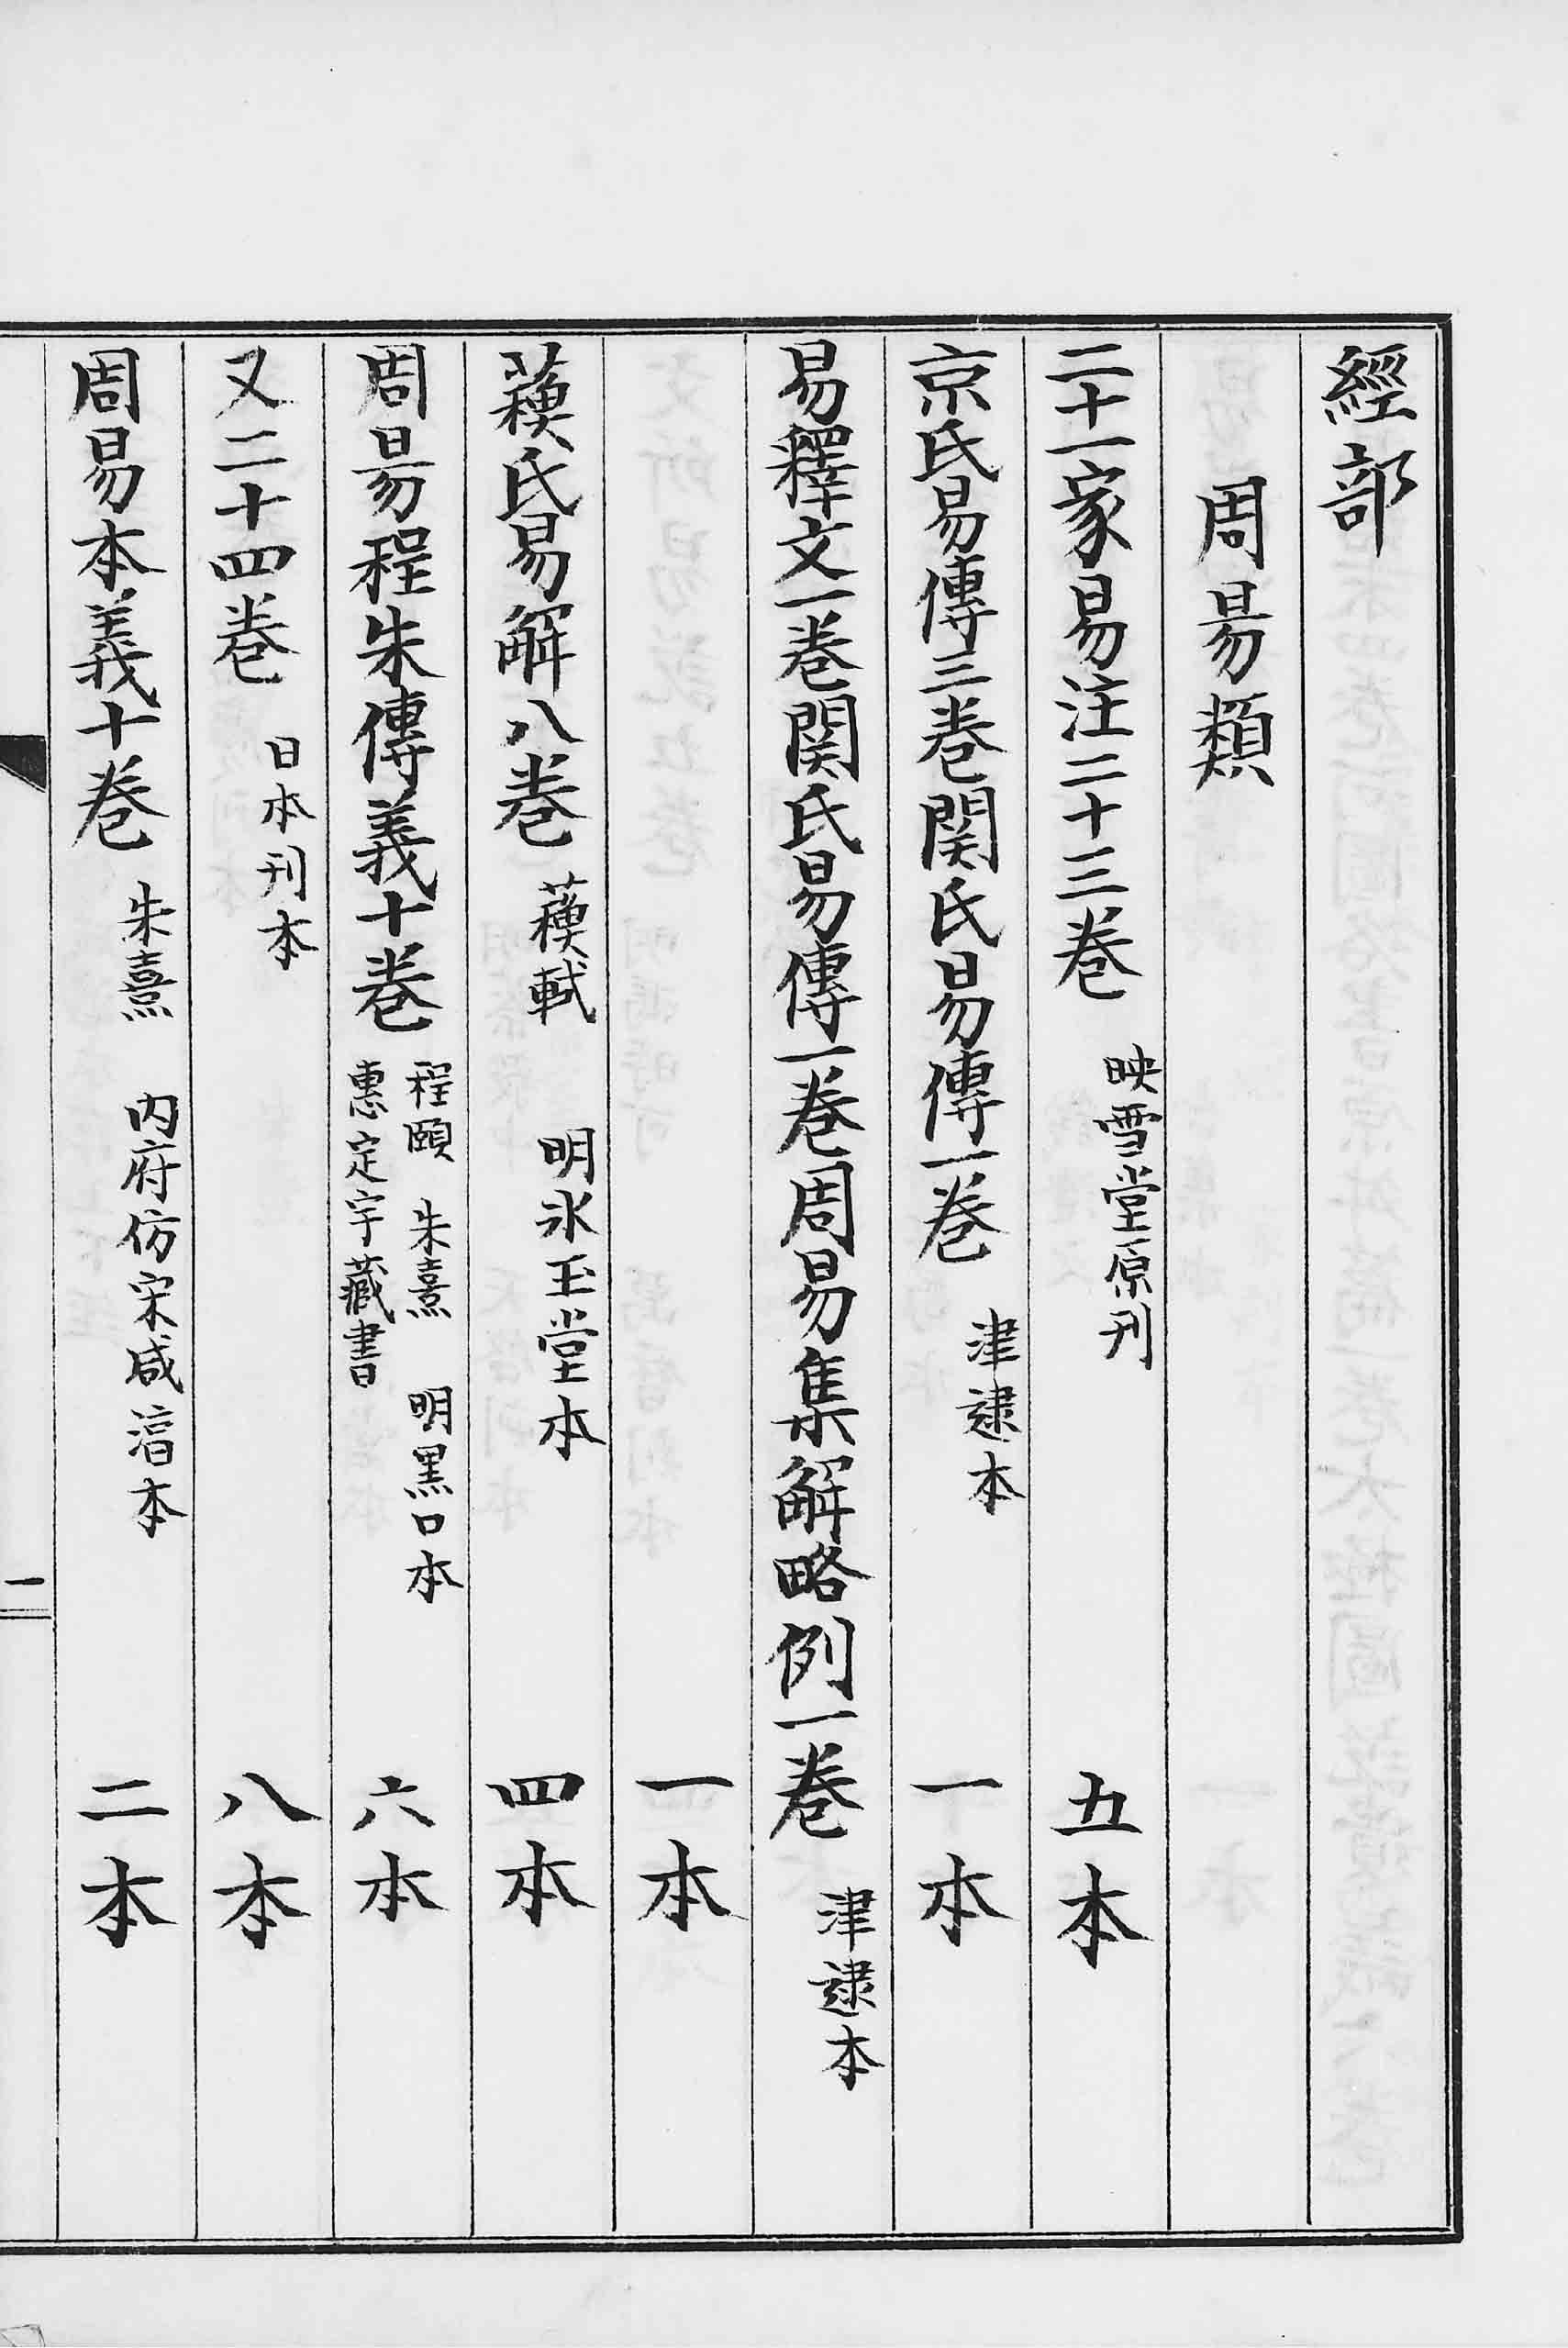 經部
周易類
二十一家易注二十三卷 映雪堂原刊 五本
京氏易傳三卷関氏易傳一卷 津逮本 一本
易釋文一卷関氏易傳一卷周易集解略例一卷 津逮本
一本
蘓氏易解八卷 蘓軾 明氷玉堂本 四本
周易程朱傳義十卷 程頤 朱熹 明黑口本 惠定宇藏書 六本
又二十四卷 日本刊本 八本
周易本義十卷 朱熹 内府仿宋咸湻本 二本
一